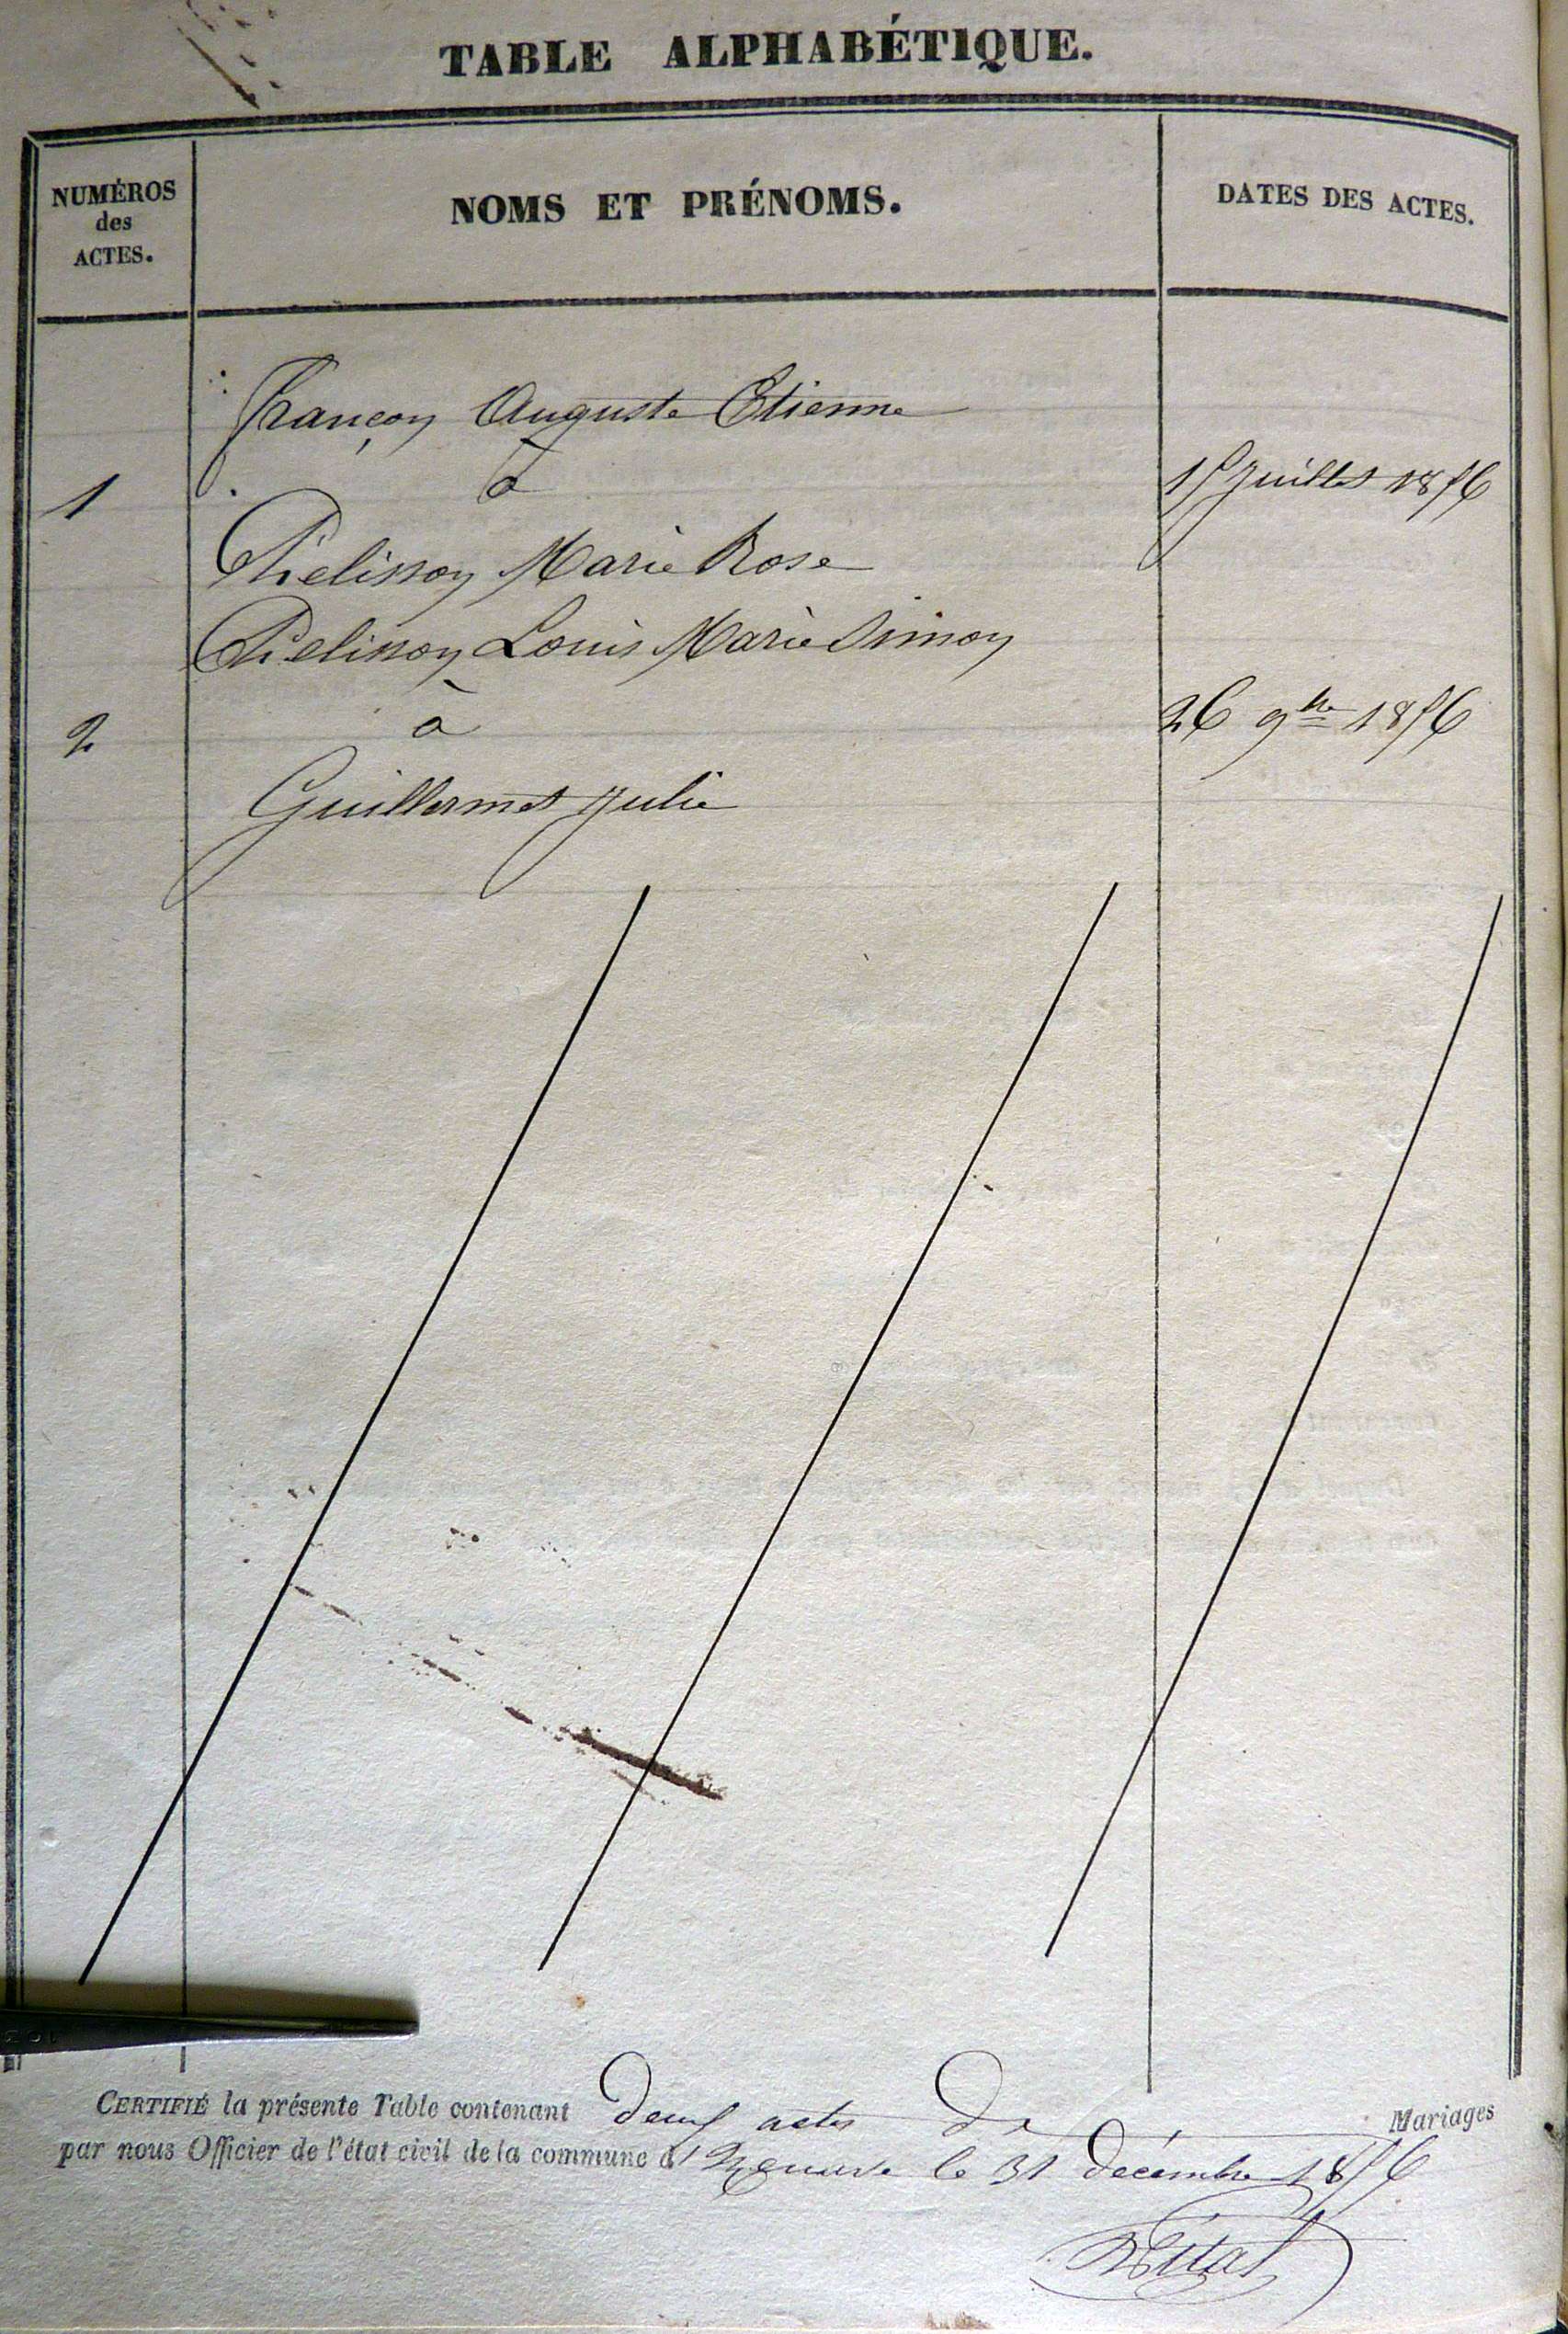 TABLE ALPHABÉTIQUE.
NUMÉROS
des
ACTES.
NOMS ET PRÉNOMS.
DATES DES ACTES.
Françon Auguste Etienne
1 à 15 Juillet 1856
Pelisson Marie Rose
Pelisson Louis Marie Simon
2 à 26 9bre 1856
Guillermet Julie
CERTIFIÉ la présente Table contenant deux actes De Mariages
par nous Officier de l'état civil de la commune d' le 31 Décembre 1856